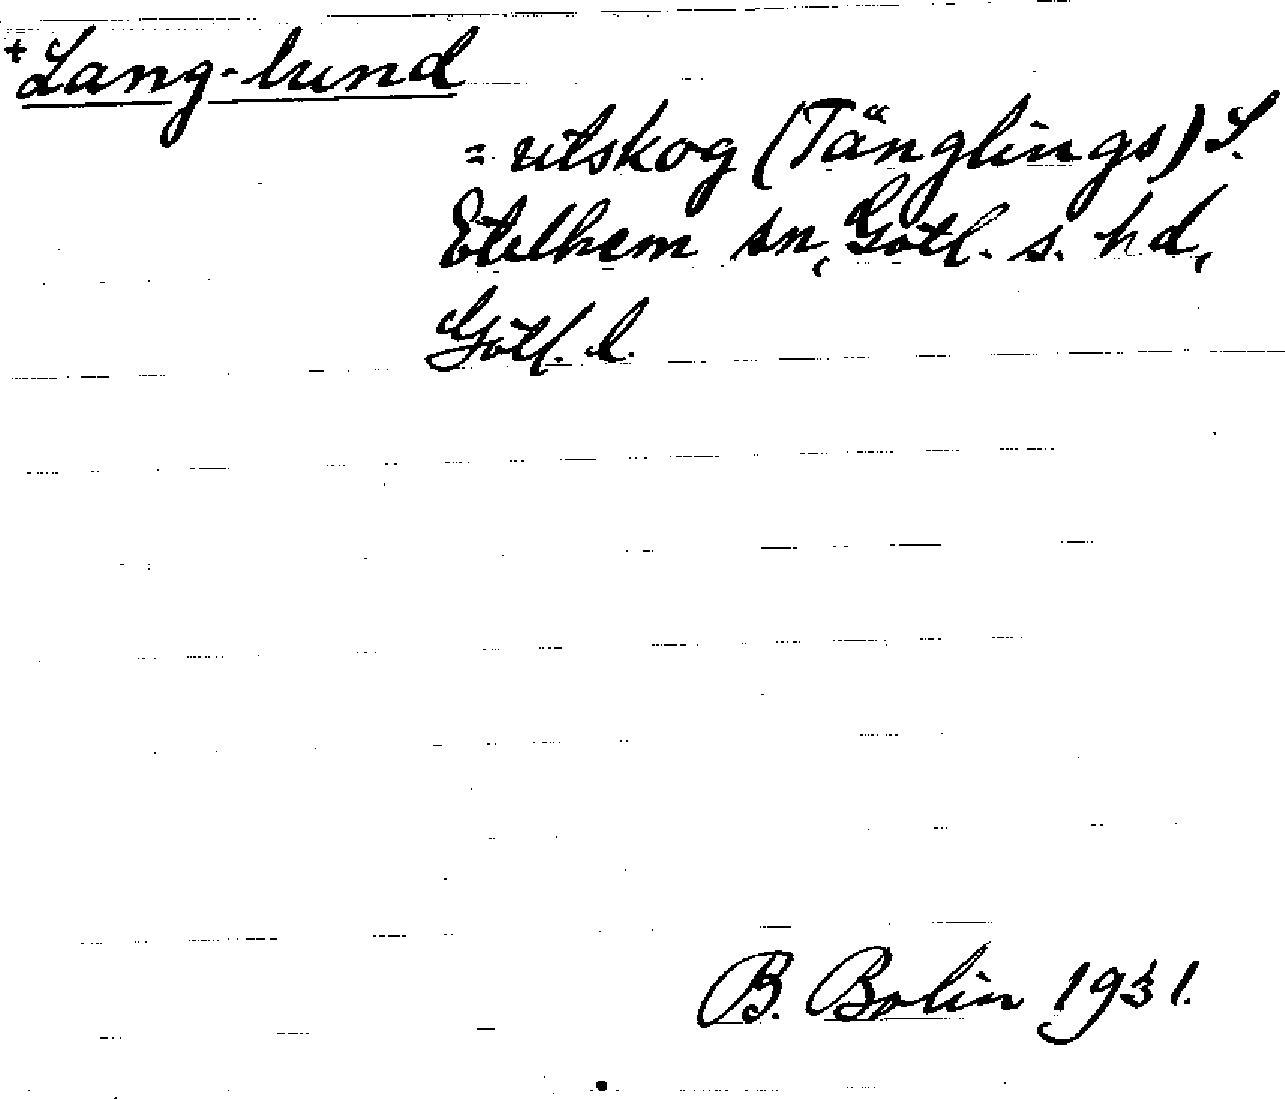 +Lang-lund
= utskog (Tänglings) S.
Etelhem sn, Gotl. s. hd,
Gotl. l.
B. Bolin 1931.